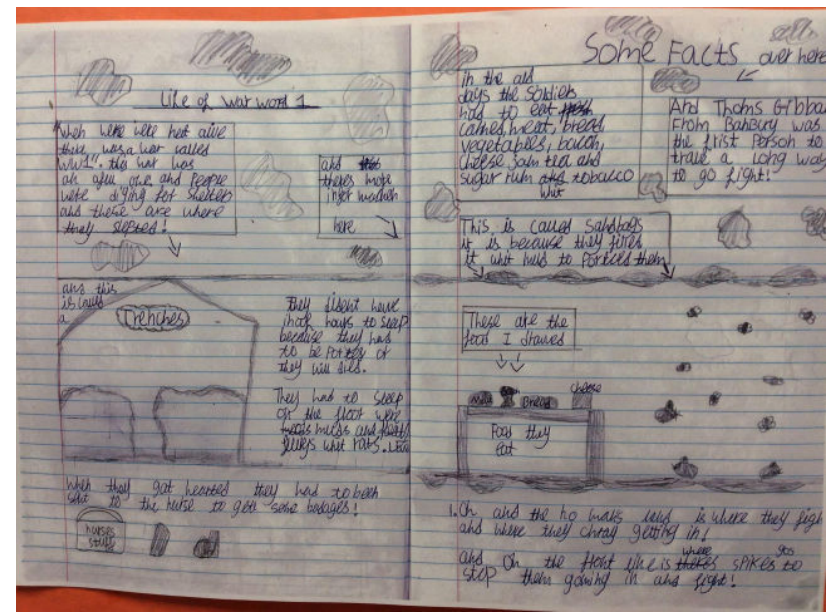 Life of war word 1
When were were not alive
there was a war called
WW1". this war was
an afull one, and People
were diging for shelters
and these are where
they sleeped!
and
theres more
infer mashen
here
and this
is called
a
Trenches
They didsent have
inof hours to sleep
because they has
to be Portey or
they will died.
They had to sleep
on the floor were
muds and
whit rats.
When they got hearted they had to been
sent to the nurse to gett some badages!
nurses
stuff
Some Facts over here
in the old
days the Soldiers
had to eat
canned, meat, bread,
vegetables, bacon,
cheese, Jam tea and
sugar rum and tobacco
whit
And Thoms Gibba
From Banbury was
the frist Person to
trale a long way
to go fight!
This is called Sandbags
it is because they fires
it whit help to Portices them
These are the
food I drawed
Milk
Bread
cheese
Food they
Eat
1. Oh and the no mans land is where they figh
and where they getting in!
and On the front line is where theres spikes gos to
stop them goming in and fight!